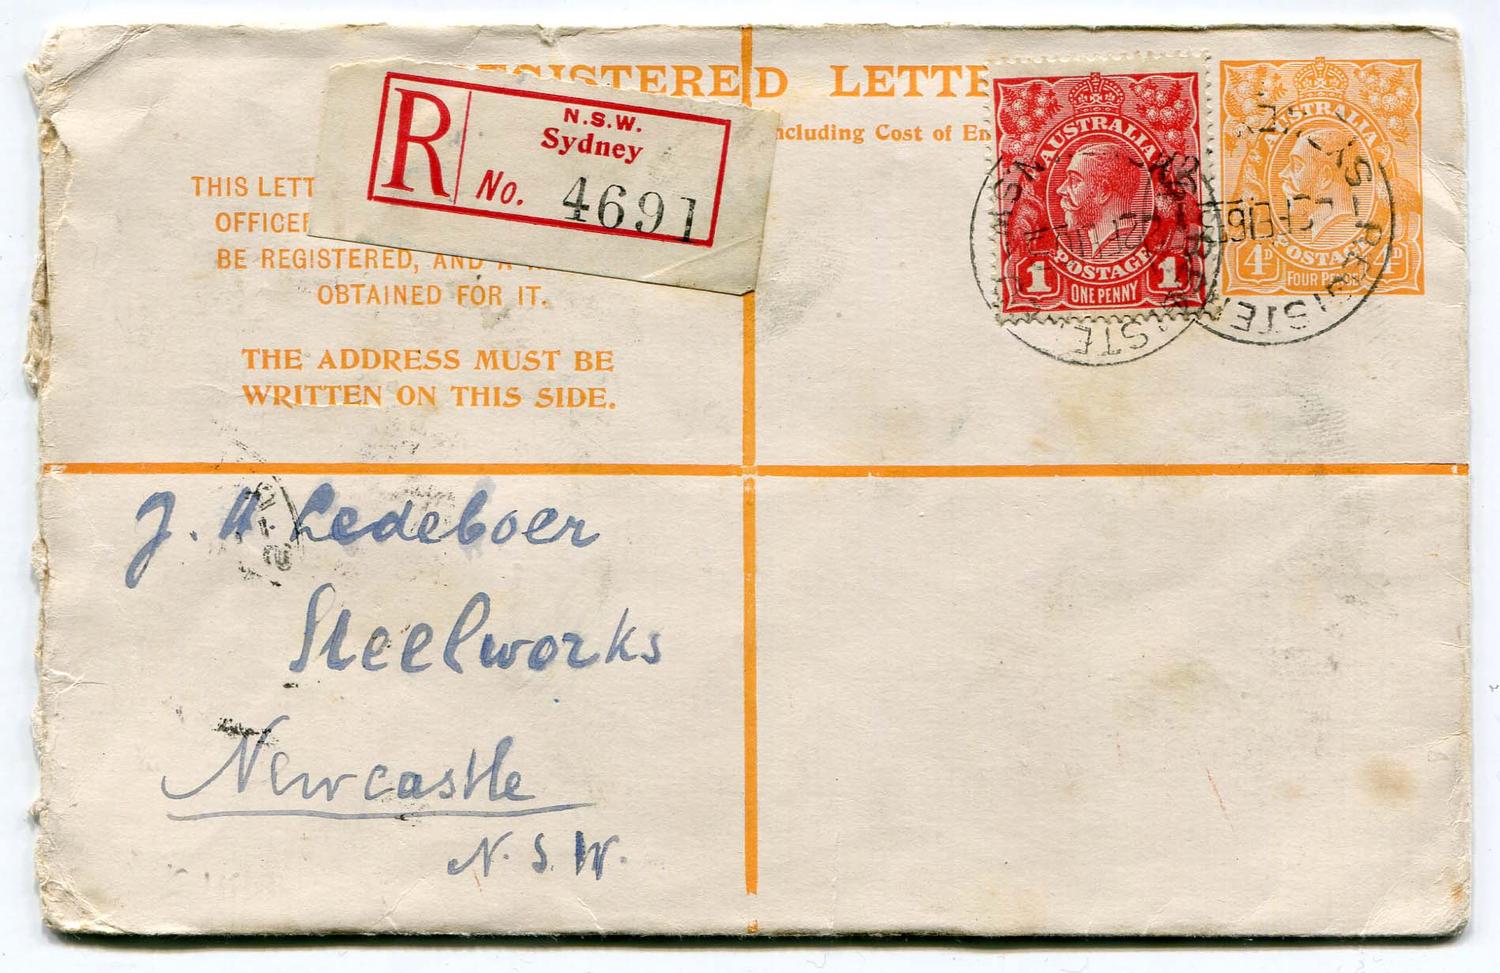 REGISTERED LETTE
ncluding Cost of En
R
N.S.W.
Sydney
No. 4691
THIS LETT
OFFICER
BE REGISTERED, AND A
OBTAINED FOR IT.
THE ADDRESS MUST BE
WRITTEN ON THIS SIDE.
AUSTRALIA
POSTAGE
1 1
ONE PENNY
AUSTRALIA
POSTAGE
4D 4D
FOUR PENCE
J. H. Ledeboer
Steelworks
Newcastle
N.S.W.